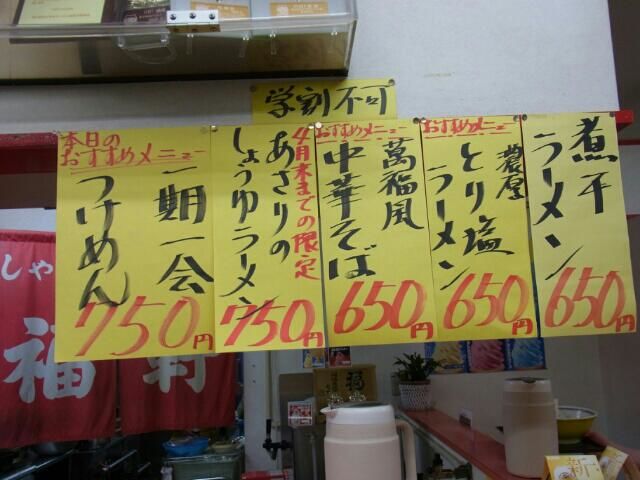 学割不可
本日の
おすすめメニュー
一期一会
つけめん
750円
4月末までの限定
あさりの
しょうゆラーメン
750円
おすすめメニュー
萬福風
中華そば
650円
おすすめメニュー
濃厚
とり塩
ラーメン
650円
煮干
ラーメン
650円
しゃ
福
福
新